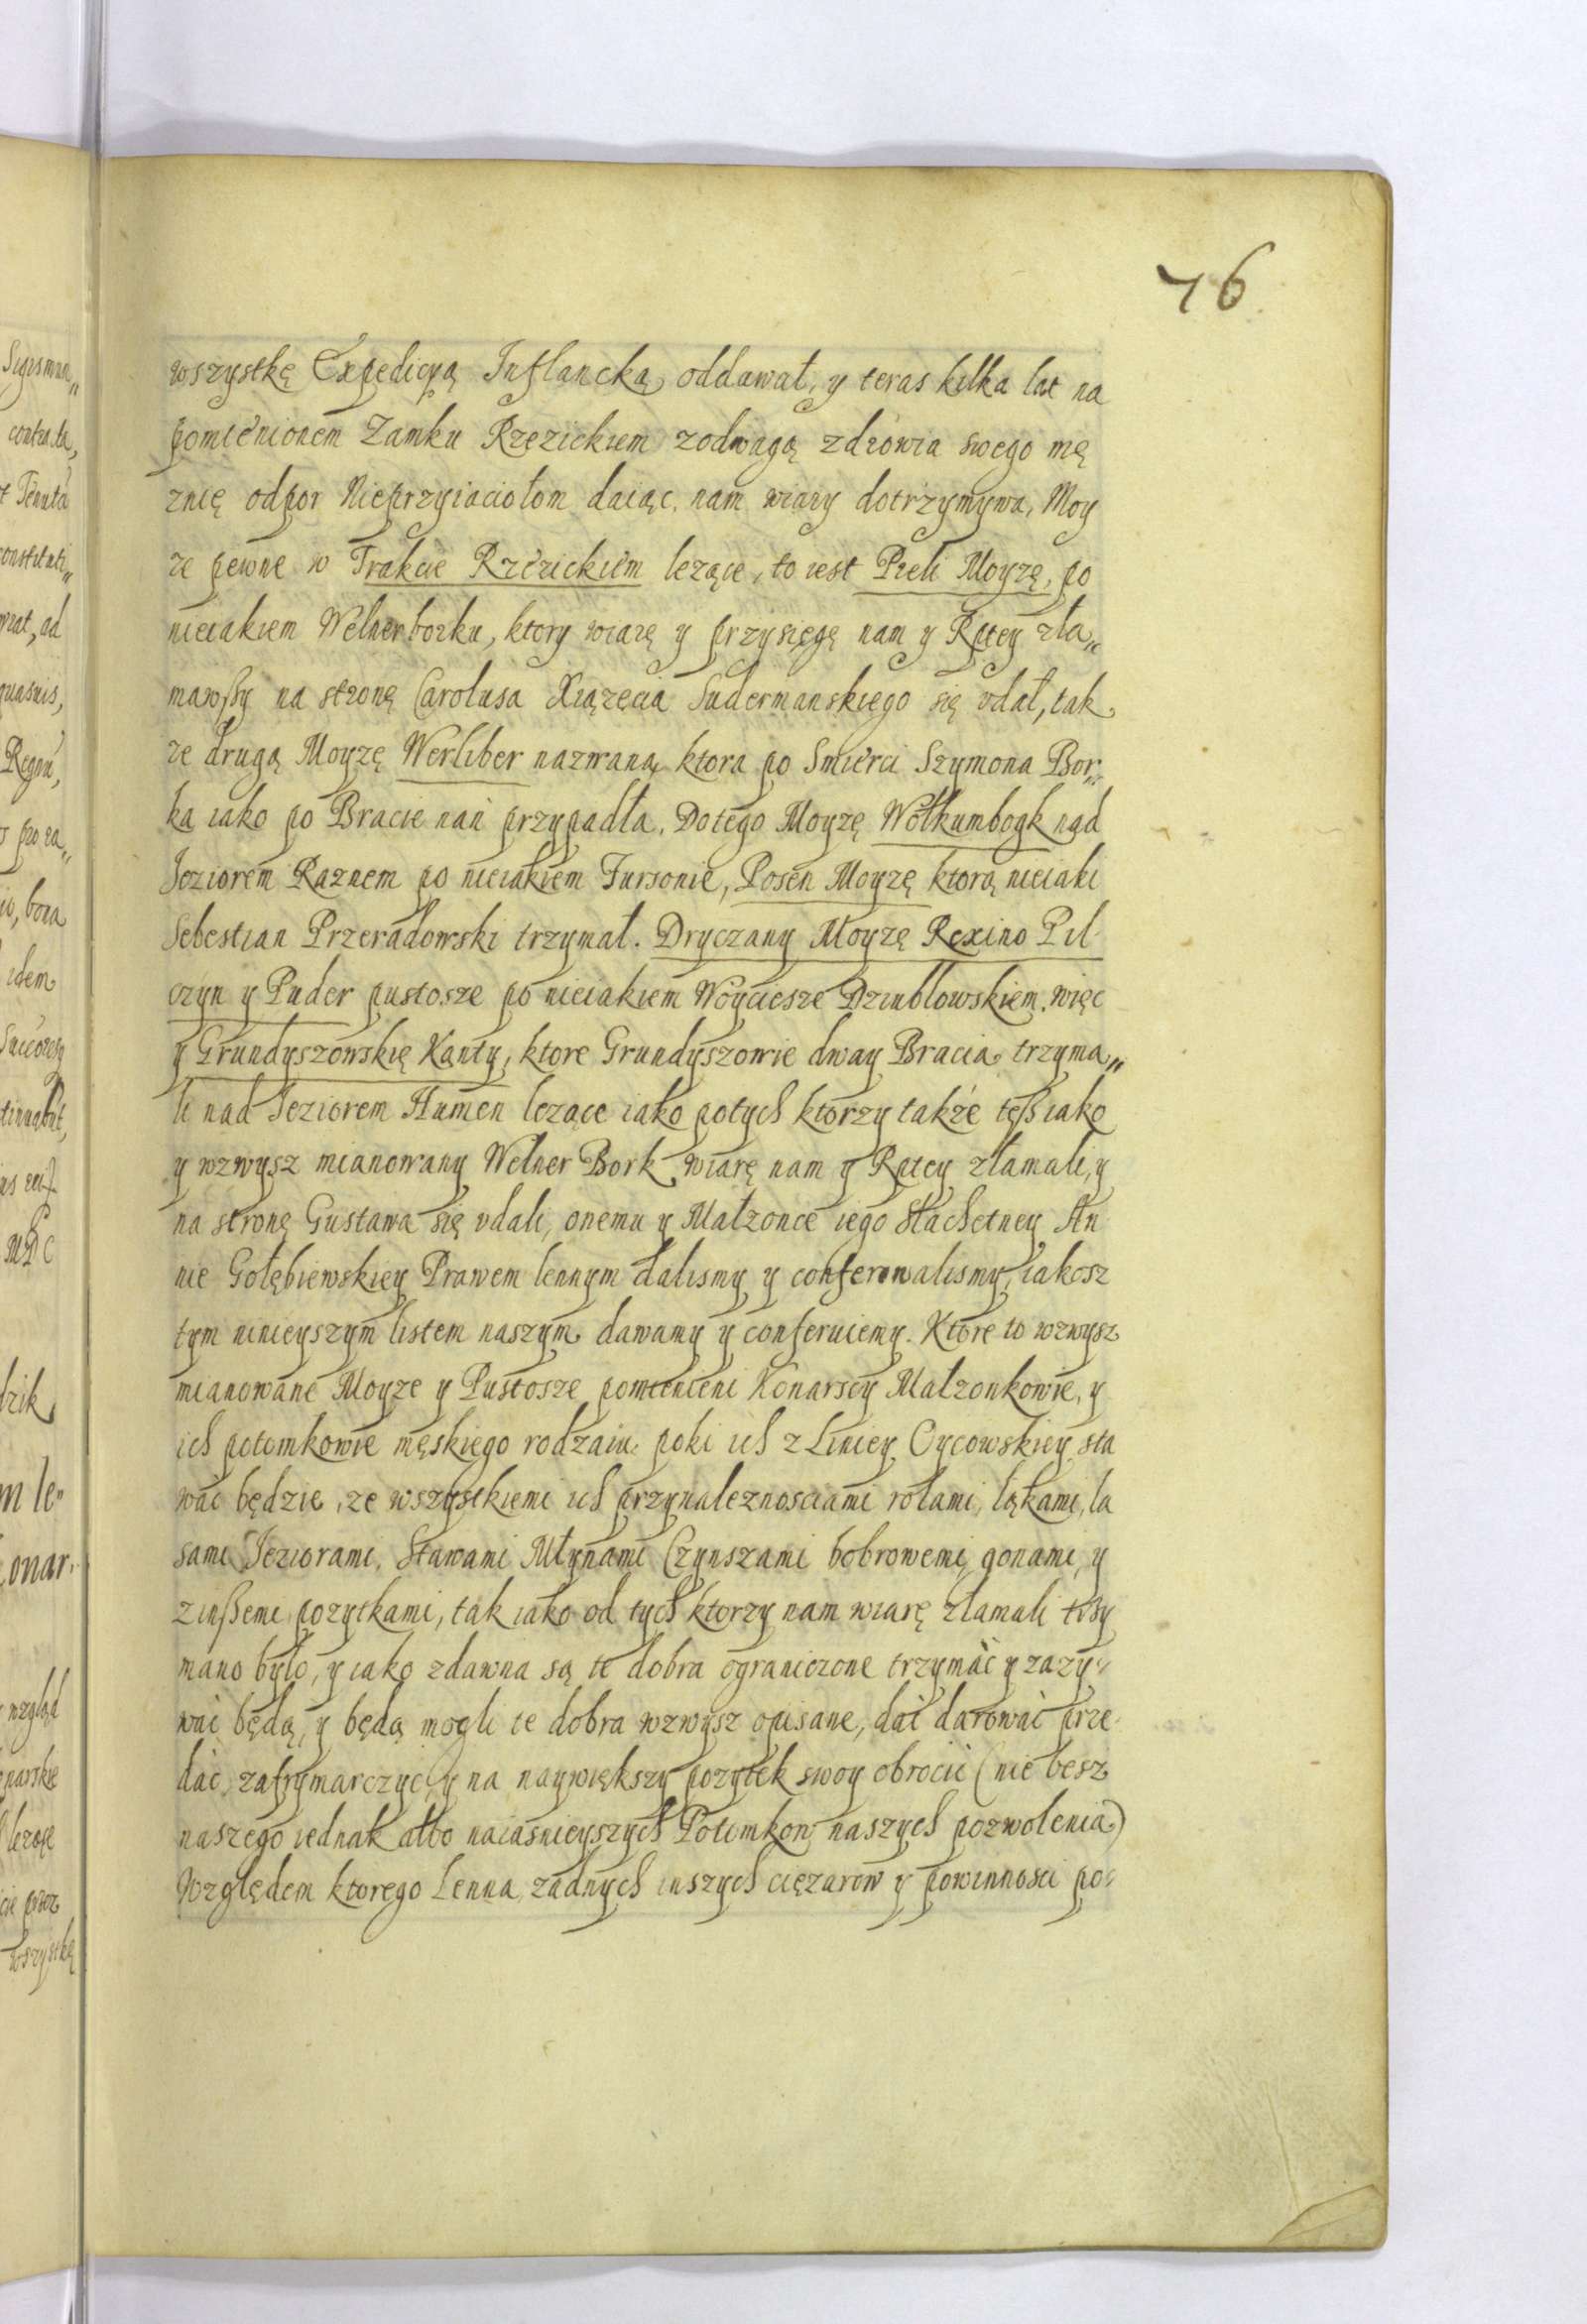 76
wszystkę Expedicyą Inflancką oddawał, y teras kilka lat na
pomienionem Zamku Rzezickiem zodwagą zdrowia swego mę
znię odpor Nieprzyiaciołom daiąc, nam wiary dotrzymywa, Moy
ze pewne w Trakcie Rzezickiem lezące, to iest Pzeli Moyzę, po
nieiakiem Welnerborku, ktory wiarę y przysięgę nam y Rptey zła„
mawszy na stronę Carolusa Xiązęcia Sudermanskiego się vdał, tak
ze drugą Moyzę Werliber nazwaną ktora po Smierci Szymona Bor„
ka iako po Bracie nań przypadła. Dotego Moyzę Wołkumbogk nad
Ieziorem Raznem po nieiakiem Fursonie, Posen Moyzę ktorą nieiaki
Sebestian Przeradowski trzymał. Dryczany Moyzę Rexino Pil-
czyn y Puder pustosze po nieiakiem Woyciesze Dziublowskiem. więc
y Grundyszowskię Kąnty, ktore Grundyszowie dway Bracia trzyma„
li nad Ieziorem Humen lezące iako potych ktorzy także tesz iako
y wzwysz mianowany Welner Bork wiarę nam y Rptey złamali, y
na stronę Gustawa się vdali, onemu y Małzonce iego Slachetney An
nie Gołębiewskiey Prawem lennym dalismy y conferowalismy, iakosz
tym ninieyszym listem naszym dawamy y conferuiemy. Ktore to wzwysz
mianowane Moyze y Pustosze pomienieni Konarscy Małzonkowie, y
ich potomkowie męskiego rodzaiu poki ich z Liniey Cycowskiey sta
wać będzie, ze wszystkiemi ich przynaleznosciami rolami, łąkami, la
sami Ieziorami, Stawami Młynami Czynszami bobrowemi gonami, y
zinszemi pozytkami, tak iako od tych ktorzy nam wiarę złamali trzy
mano było, y iako zdawna są te dobra ograniczone trzymać y zazy„
wać będą, y będą mogli te dobra wzwysz opisane, dać darować prze
dać, zafrymarczyć, y na naywiększy pozytek swoy obrocić (nie besz
naszego iednak albo naiasnieyszych Potomkow naszych pozwolenia)
Względem ktorego Lenna, zadnych inszych ciężarow y powinnosci po„